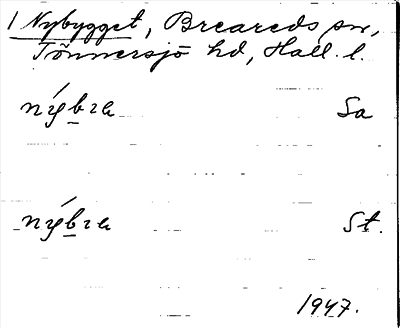 1 Nybygget, Breareds sn,
Tönnersjö hd, Hall. l.
nýbza Sa
nýbza St.
1947.